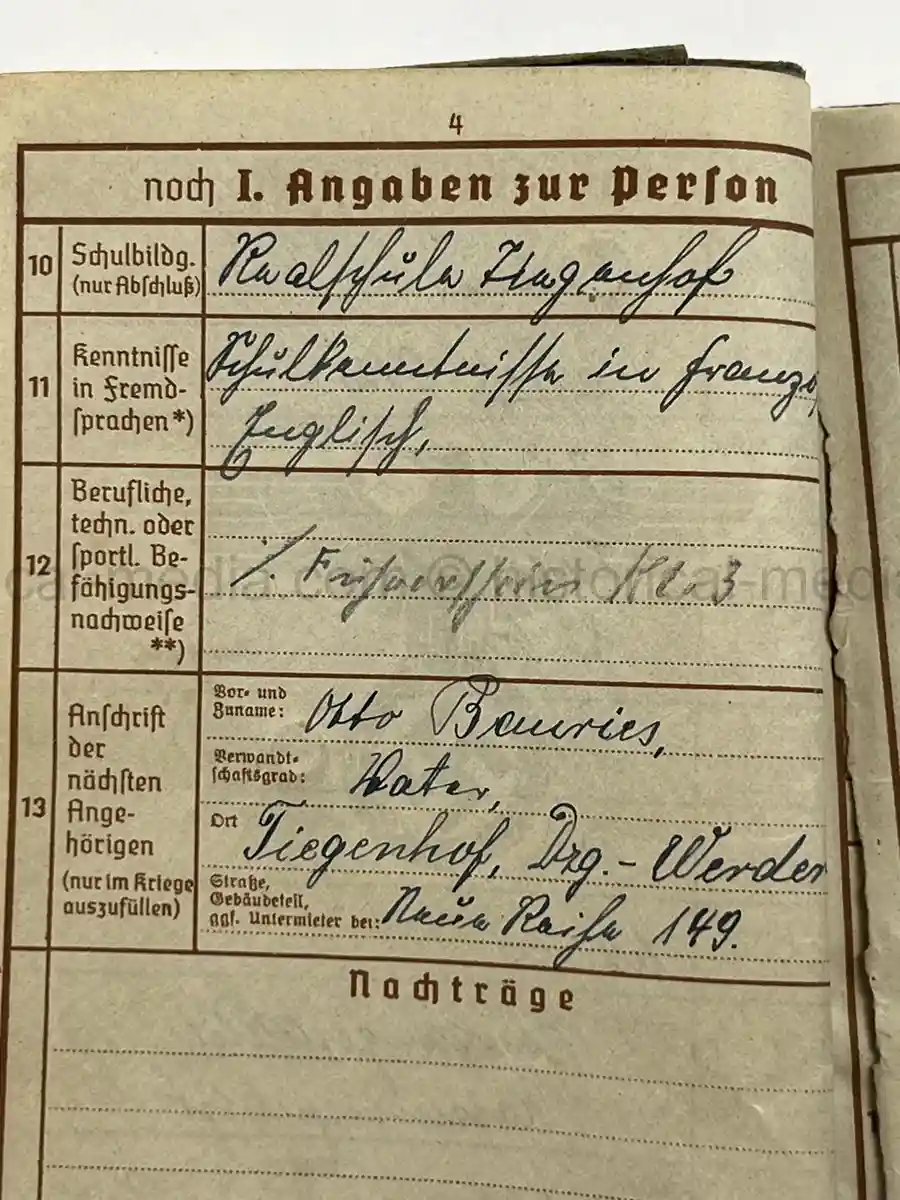 4
noch I. Angaben zur Person
10 Schulbildg. (nur Abschluß)
Realschule Tiegenhof
11 Kenntnisse in Fremdsprachen*)
Schulkenntnisse in Franzö
Englisch,
12 Berufliche, techn. oder sportl. Befähigungsnachweise **)
Führerschein Kl. 3
13 Anschrift der nächsten Angehörigen (nur im Kriege auszufüllen)
Vor- und Zuname: Otto Bauries,
Verwandtschaftsgrad: Vater,
Ort Tiegenhof, Dzg.-Werder
Straße, Gebäudeteil, ggf. Untermieter bei: Neue Reihe 149.
Nachträge